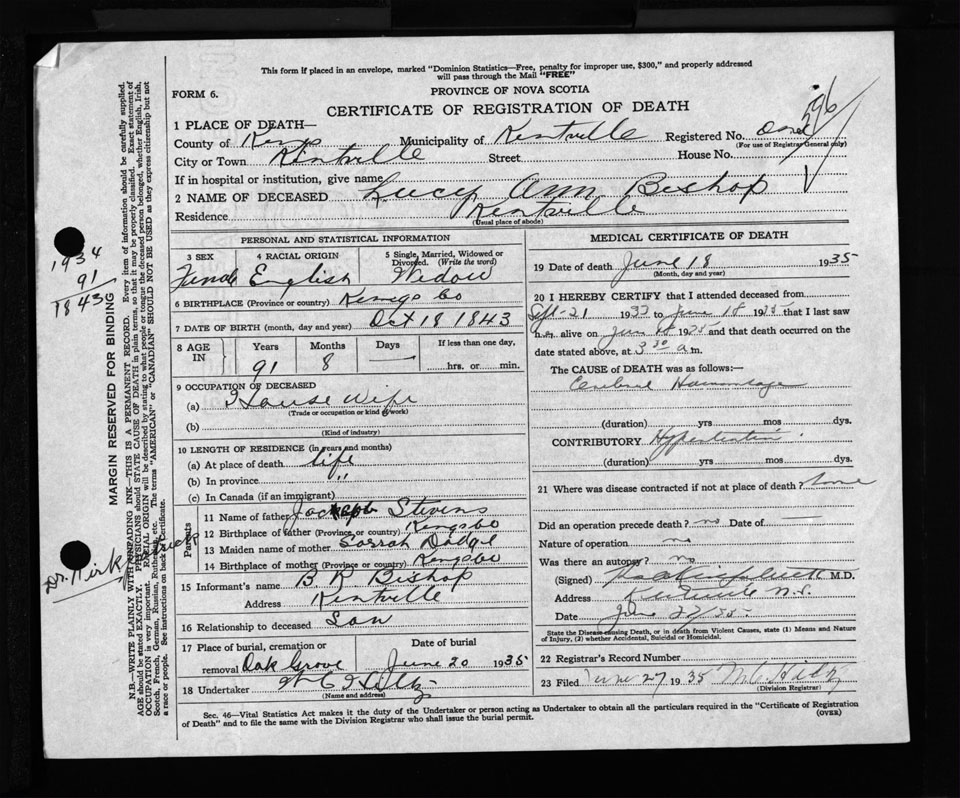 This form if placed in an envelope, marked "Dominion Statistics—Free, penalty for improper use, $300," and properly addressed
will pass through the Mail "FREE"
FORM 6.
PROVINCE OF NOVA SCOTIA
CERTIFICATE OF REGISTRATION OF DEATH
596
1 PLACE OF DEATH—
County of Kings Municipality of Kentville Registered No.
(For use of Registrar General only)
City or Town Kentville Street House No.
If in hospital or institution, give name
2 NAME OF DECEASED Lucy Ann Bishop
Residence Kentville
(Usual place of abode)
PERSONAL AND STATISTICAL INFORMATION
3 SEX 4 RACIAL ORIGIN 5 Single, Married, Widowed or Divorced. (Write the word)
English Widow
6 BIRTHPLACE (Province or country) Kings Co
7 DATE OF BIRTH (month, day and year) Oct 18 1843
8 AGE IN Years Months Days If less than one day,
91 8 hrs. or min.
9 OCCUPATION OF DECEASED
(a) House Wife
(Trade or occupation or kind of work)
(b)
(Kind of industry)
10 LENGTH OF RESIDENCE (in years and months)
(a) At place of death life
(b) In province "
(c) In Canada (if an immigrant)
Parents
11 Name of father Stevens
12 Birthplace of father (Province or country) Kings Co
13 Maiden name of mother Sarrah Dodge
14 Birthplace of mother (Province or country) Kings Co
15 Informant's name B R Bishop
Address Kentville
16 Relationship to deceased Son
17 Place of burial, cremation or removal Oak Grove Date of burial June 20 1935
18 Undertaker
(Name and address)
MEDICAL CERTIFICATE OF DEATH
19 Date of death June 18 1935
(Month, day and year)
20 I HEREBY CERTIFY that I attended deceased from
Sept-21 to June 18 1935 that I last saw
her alive on June 18 1935 and that death occurred on the
date stated above, at 3 30 a m.
The CAUSE of DEATH was as follows:—
Cerebral Haemorrhage
(duration) yrs mos dys.
CONTRIBUTORY Hypertension.
(duration) yrs mos dys.
21 Where was disease contracted if not at place of death?
Did an operation precede death? no Date of
Nature of operation no
Was there an autopsy? no
(Signed) M.D.
Address Kentville N.S.
Date June 27/35
State the Disease causing Death, or in death from Violent Causes, state (1) Means and Nature
of Injury, (2) whether Accidental, Suicidal or Homicidal.
22 Registrar's Record Number
23 Filed June 27 1935
(Division Registrar)
Sec. 46—Vital Statistics Act makes it the duty of the Undertaker or person acting as Undertaker to obtain all the particulars required in the "Certificate of Registration
of Death" and to file the same with the Division Registrar who shall issue the burial permit.
(OVER)
1934
91
1843
MARGIN RESERVED FOR BINDING
N.B.—WRITE PLAINLY WITH UNFADING INK—THIS IS A PERMANENT RECORD. Every item of information should be carefully supplied.
AGE should be stated EXACTLY. PHYSICIANS should STATE CAUSE OF DEATH in plain terms, so that it may be properly classified. Exact statement of
OCCUPATION is very important. RACIAL ORIGIN will be described by stating to what people or tongue the deceased person belonged, whether English, Irish,
Scotch, French, German, Russian, Ruthenian, etc. The terms "AMERICAN" or "CANADIAN" SHOULD NOT BE USED as they express citizenship but not
a race or people. See instructions on back of Certificate.